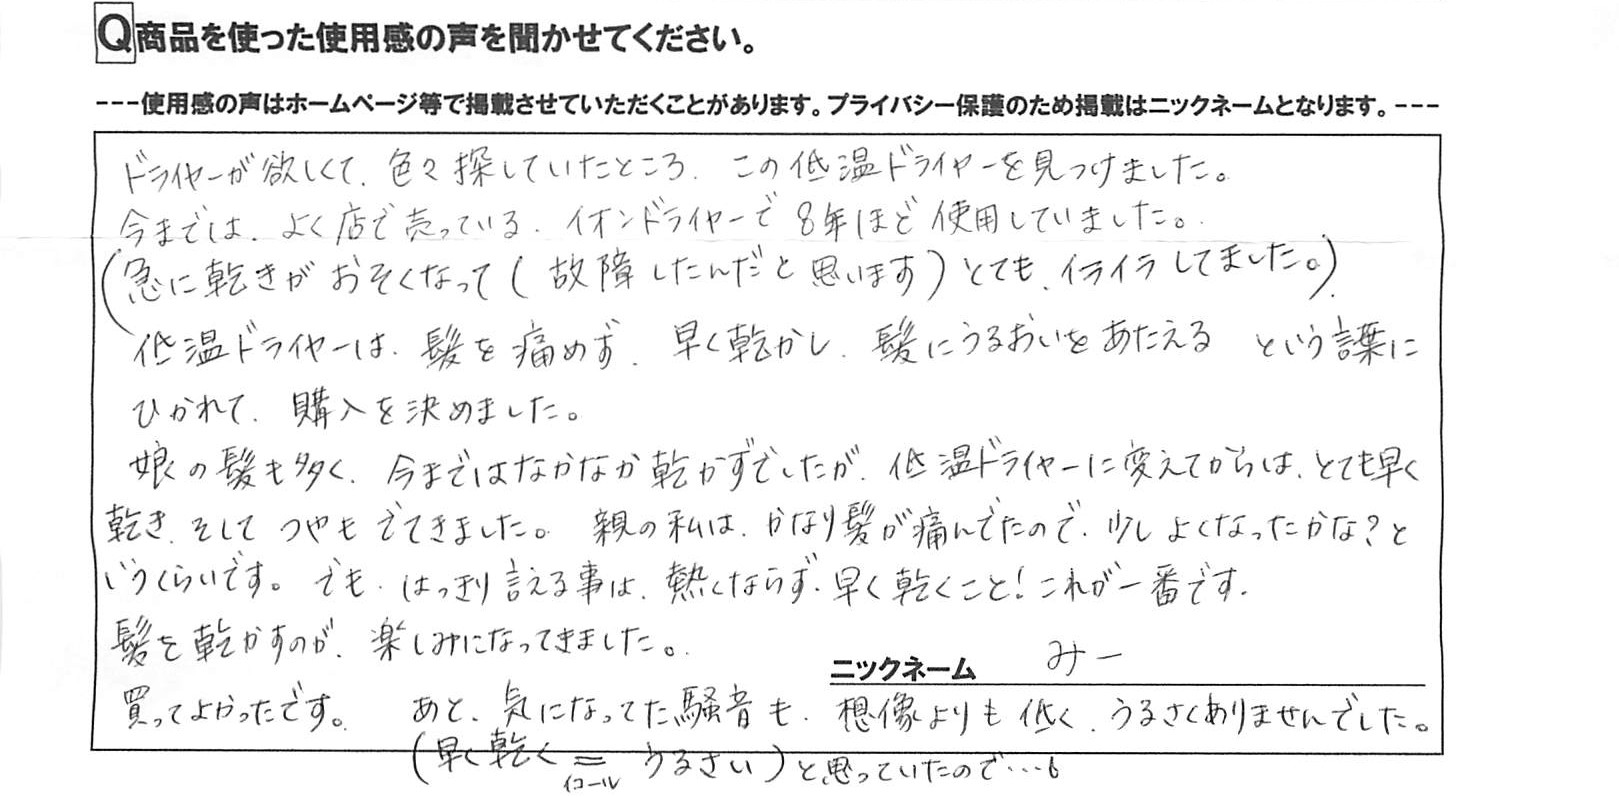 Q商品を使った使用感の声を聞かせてください。
---使用感の声はホームページ等で掲載させていただくことがあります。プライバシー保護のため掲載はニックネームとなります。---
ドライヤーが欲しくて、色々探していたところ、この低温ドライヤーを見つけました。
今までは、よく店で売っている、イオンドライヤーで8年ほど使用していました。
(急に乾きがおそくなって(故障したんだと思います)とても、イライラしてました。)
低温ドライヤーは、髪を痛めず、早く乾かし、髪にうるおいをあたえる という言葉に
ひかれて、購入を決めました。
娘の髪も多く、今まではなかなか乾かずでしたが、低温ドライヤーに変えてからは、とても早く
乾き、そして つやもでてきました。親の私は、かなり髪が痛んでたので、少しよくなったかな?と
いうくらいです。でも、はっきり言える事は、熱くならず、早く乾くこと!これが一番です。
髪を乾かすのが、楽しみになってきました。
ニックネーム みー
買ってよかったです。 あと、気になってた騒音も、想像よりも低く、うるさくありませんでした。
(早く乾く=うるさい)と思っていたので…
イコール